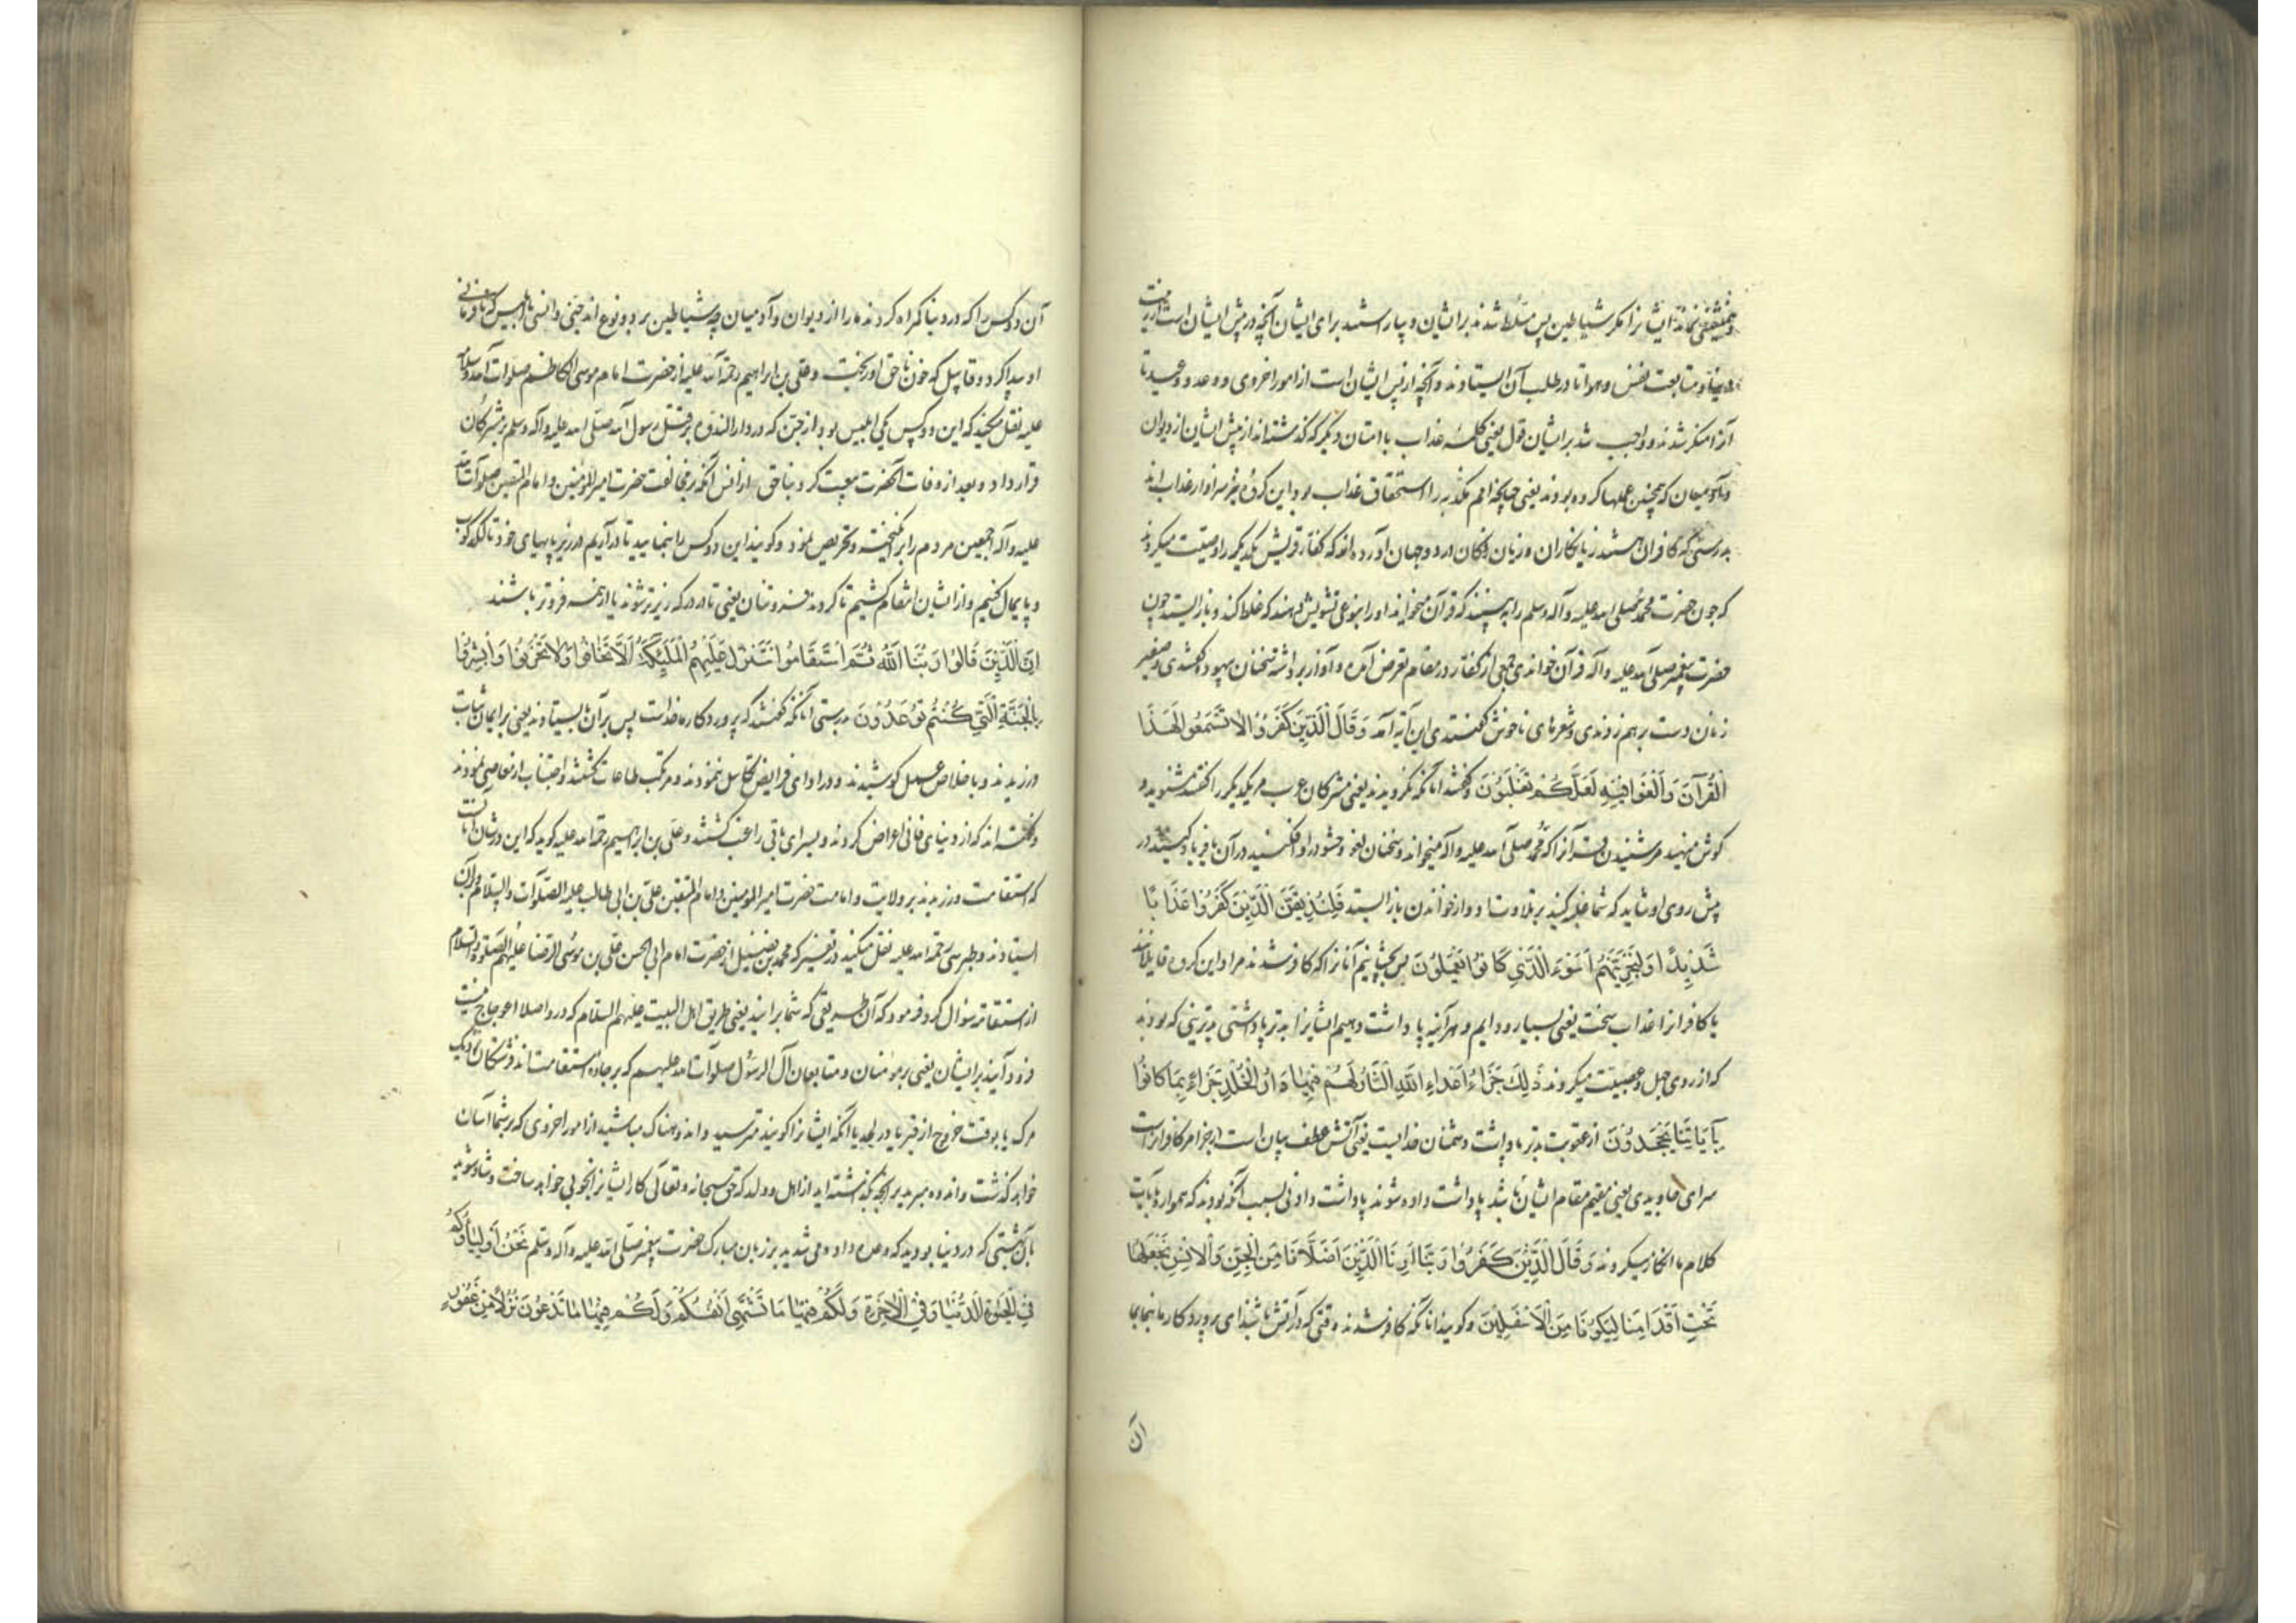 نمانده ایشانرا مکر شیاطین پس مسلط شدند بر ایشان و بیاراستند برای ایشان آنچه در پیش ایشان است از زینت
دنیا و متابعت نفس و هوا تا در طلب آن ایستادند و آنچه از پس ایشان است از امور اخروی و وعد و وعید تا
آنرا منکر شدند و واجب شد بر ایشان قول یعنی کلمه عذاب با امتان دیکر که کذشته اند از پیش ایشان از دیوان
و آدمیان که همچنین عملها کرده بودند یعنی چنانچه امم مکذبه را استحقاق عذاب بود این کروه نیز سزاوار عذاب اند
بدرستی که کافران هستند زیانکاران و زیان زدکان در دو جهان آورده اند که کفار قریش یکدیکر را وصیت میکردند
که چون حضرت محمد صلی الله علیه و آله وسلم را به بینند که قرآن میخواند او را بنوعی تشویش دهند که غلط کند و باز ایستد چون
حضرت پیغمبر صلی الله علیه و آله قرآن خواندی جمعی از کفار در مقام تعرض آمده و آواز برداشته سخنان بیهوده کفتندی و صفیر
زنان دست بر هم زدندی و شعرهای ناخوش کفتندی این آیه آمد وَقَالَ الَّذِينَ كَفَرُوا لَا تَسْمَعُوا لِهَذَا
الْقُرْآنَ وَالْغَوْا فِيهِ لَعَلَّكُمْ تَغْلِبُونَ و کفتند آنانکه نکرویدند یعنی مشرکان عرب مر یکدیکر را کفتند مشنوید و
کوش منهید مر شنیدن قرآنرا که محمد صلی الله علیه و آله میخواند و سخنان لغو و حشو در او افکنید در آن با فریاد کنید در
پیش روی او شاید که شما غلبه کنید بر تلاوت او و از خواندن باز ایستد فَلَنُذِيقَنَّ الَّذِينَ كَفَرُوا عَذَابًا
شَدِيدًا وَلَنَجْزِيَنَّهُمْ أَسْوَءَ الَّذِي كَانُوا يَعْمَلُونَ پس بچشانیم آنانرا که کافر شدند مراد این کروه قایلانند
یا کافرانرا عذاب سخت یعنی بسیار و دایم و هرآینه پاداشت دهیم ایشانرا بدتر پاداشتی بدترینی که بودند
که از روی جهل و عصبیت میکردند ذَلِكَ جَزَاءُ أَعْدَاءِ اللَّهِ النَّارُ لَهُمْ فِيهَا دَارُ الْخُلْدِ جَزَاءً بِمَا كَانُوا
بِآيَاتِنَا يَجْحَدُونَ از عقوبت بدتر پاداشت دشمنان خدایست یعنی آتش عطف بیان است از جزا مر کافرانراست
سرای جاویدی یعنی مقیم مقام ایشان باشد پاداشت داده شوند پاداشت دادنی بسبب آنکه بودند که همواره بآیات
کلام ما انکار میکردند وَقَالَ الَّذِينَ كَفَرُوا رَبَّنَا أَرِنَا الَّذَيْنِ أَضَلَّانَا مِنَ الْجِنِّ وَالْإِنْسِ نَجْعَلْهُمَا
تَحْتَ أَقْدَامِنَا لِيَكُونَا مِنَ الْأَسْفَلِينَ و کویند آنانکه کافر شدند وقتی که در آتش باشند ای پروردکار ما بنما بما
آن
آن دو کس را که در دنیا کمراه کردند ما را از دیوان و آدمیان چه شیاطین بر دو نوع اند جنی و انسی یا ابلیس که نافرمانی
او پیدا کرد و قابیل که خون ناحق او ریخت و علی بن ابراهیم رحمة الله علیه از حضرت امام موسی الکاظم صلوات الله وسلامه
علیه نقل میکند که این دو کس یکی ابلیس بود از جن که در دار الندوه بر قتل رسول الله صلی الله علیه وآله وسلم مشرکان
قرار داد و بعد از وفات آنحضرت بیعت کرد بناحق از انس آنکه بر مخالفت حضرت امیر المؤمنین و امام المتقین صلوات الله
علیه و آله اجمعین مردم را برانکیخته و تحریص نمود و کویند این دو کس را بنمایید تا درآریم در زیر پایهای خود تا لکدکوب
و پایمال کنیم و از ایشان انتقام کشیم تا کردند فروتنان یعنی تا در درکه زیرتر شوند یا از همه فروتر باشند
إِنَّ الَّذِينَ قَالُوا رَبُّنَا اللَّهُ ثُمَّ اسْتَقَامُوا تَتَنَزَّلُ عَلَيْهِمُ الْمَلَئِكَةُ أَلَّا تَخَافُوا وَلَا تَحْزَنُوا وَأَبْشِرُوا
بِالْجَنَّةِ الَّتِي كُنْتُمْ تُوعَدُونَ بدرستی آنانکه کفتند که پروردکار ما خداست پس بر آن بایستادند یعنی بر ایمان ثبات
ورزیدند و باخلاص عمل کوشیدند و در ادای فرایض تکاسل ننمودند و مرتکب طاعات کشتند و اجتناب از معاصی نمودند
و کفته اند که از دنیای فانی اعراض کردند و بسرای باقی راغب کشتند و علی بن ابراهیم رحمة الله علیه کوید که این در شان آنانست
که استقامت ورزیدند بر ولایت و امامت حضرت امیر المومنین و امام المتقین علی بن ابی طالب علیه الصلوات والسلام و بر آن
ایستادند و طبرسی رحمة الله علیه نقل میکند در تفسیر که محمد بن فضیل از حضرت امام ابی الحسن علی بن موسی الرضا علیهم الصلوة والسلام
از استقامت سوال کرد فرمود که آن طریقی که شما برانید یعنی طریق اهل البیت علیهم السلام که در او اصلا اعوجاج نیست
فرود آیند بر ایشان یعنی بر مؤمنان و متابعان آل الرسول صلوات الله علیهم که بر جاده استقامت اند فرشتکان نزدیک
مرک یا بوقت خروج از قبر یا در لحد یا آنکه ایشانرا کویند مترسید و اندوهناک مباشید از امور اخروی که بر شما آسان
خواهد کذشت و اندوه مبرید بر آنچه بکذاشته اید از اهل و ولد که حق سبحانه و تعالی کار ایشانرا بخوبی خواهد ساخت و شاد شوید
بآن بهشتی که در دنیا بودید که وعده داده می شدید بر زبان مبارک حضرت پیغمبر صلی الله علیه و آله وسلم نَحْنُ أَوْلِيَاؤُكُمْ
فِي الْحَيَوةِ الدُّنْيَا وَفِي الْآخِرَةِ وَلَكُمْ فِيهَا مَا تَشْتَهِي أَنْفُسُكُمْ وَلَكُمْ فِيهَا مَا تَدَّعُونَ نُزُلًا مِنْ غَفُورٍ